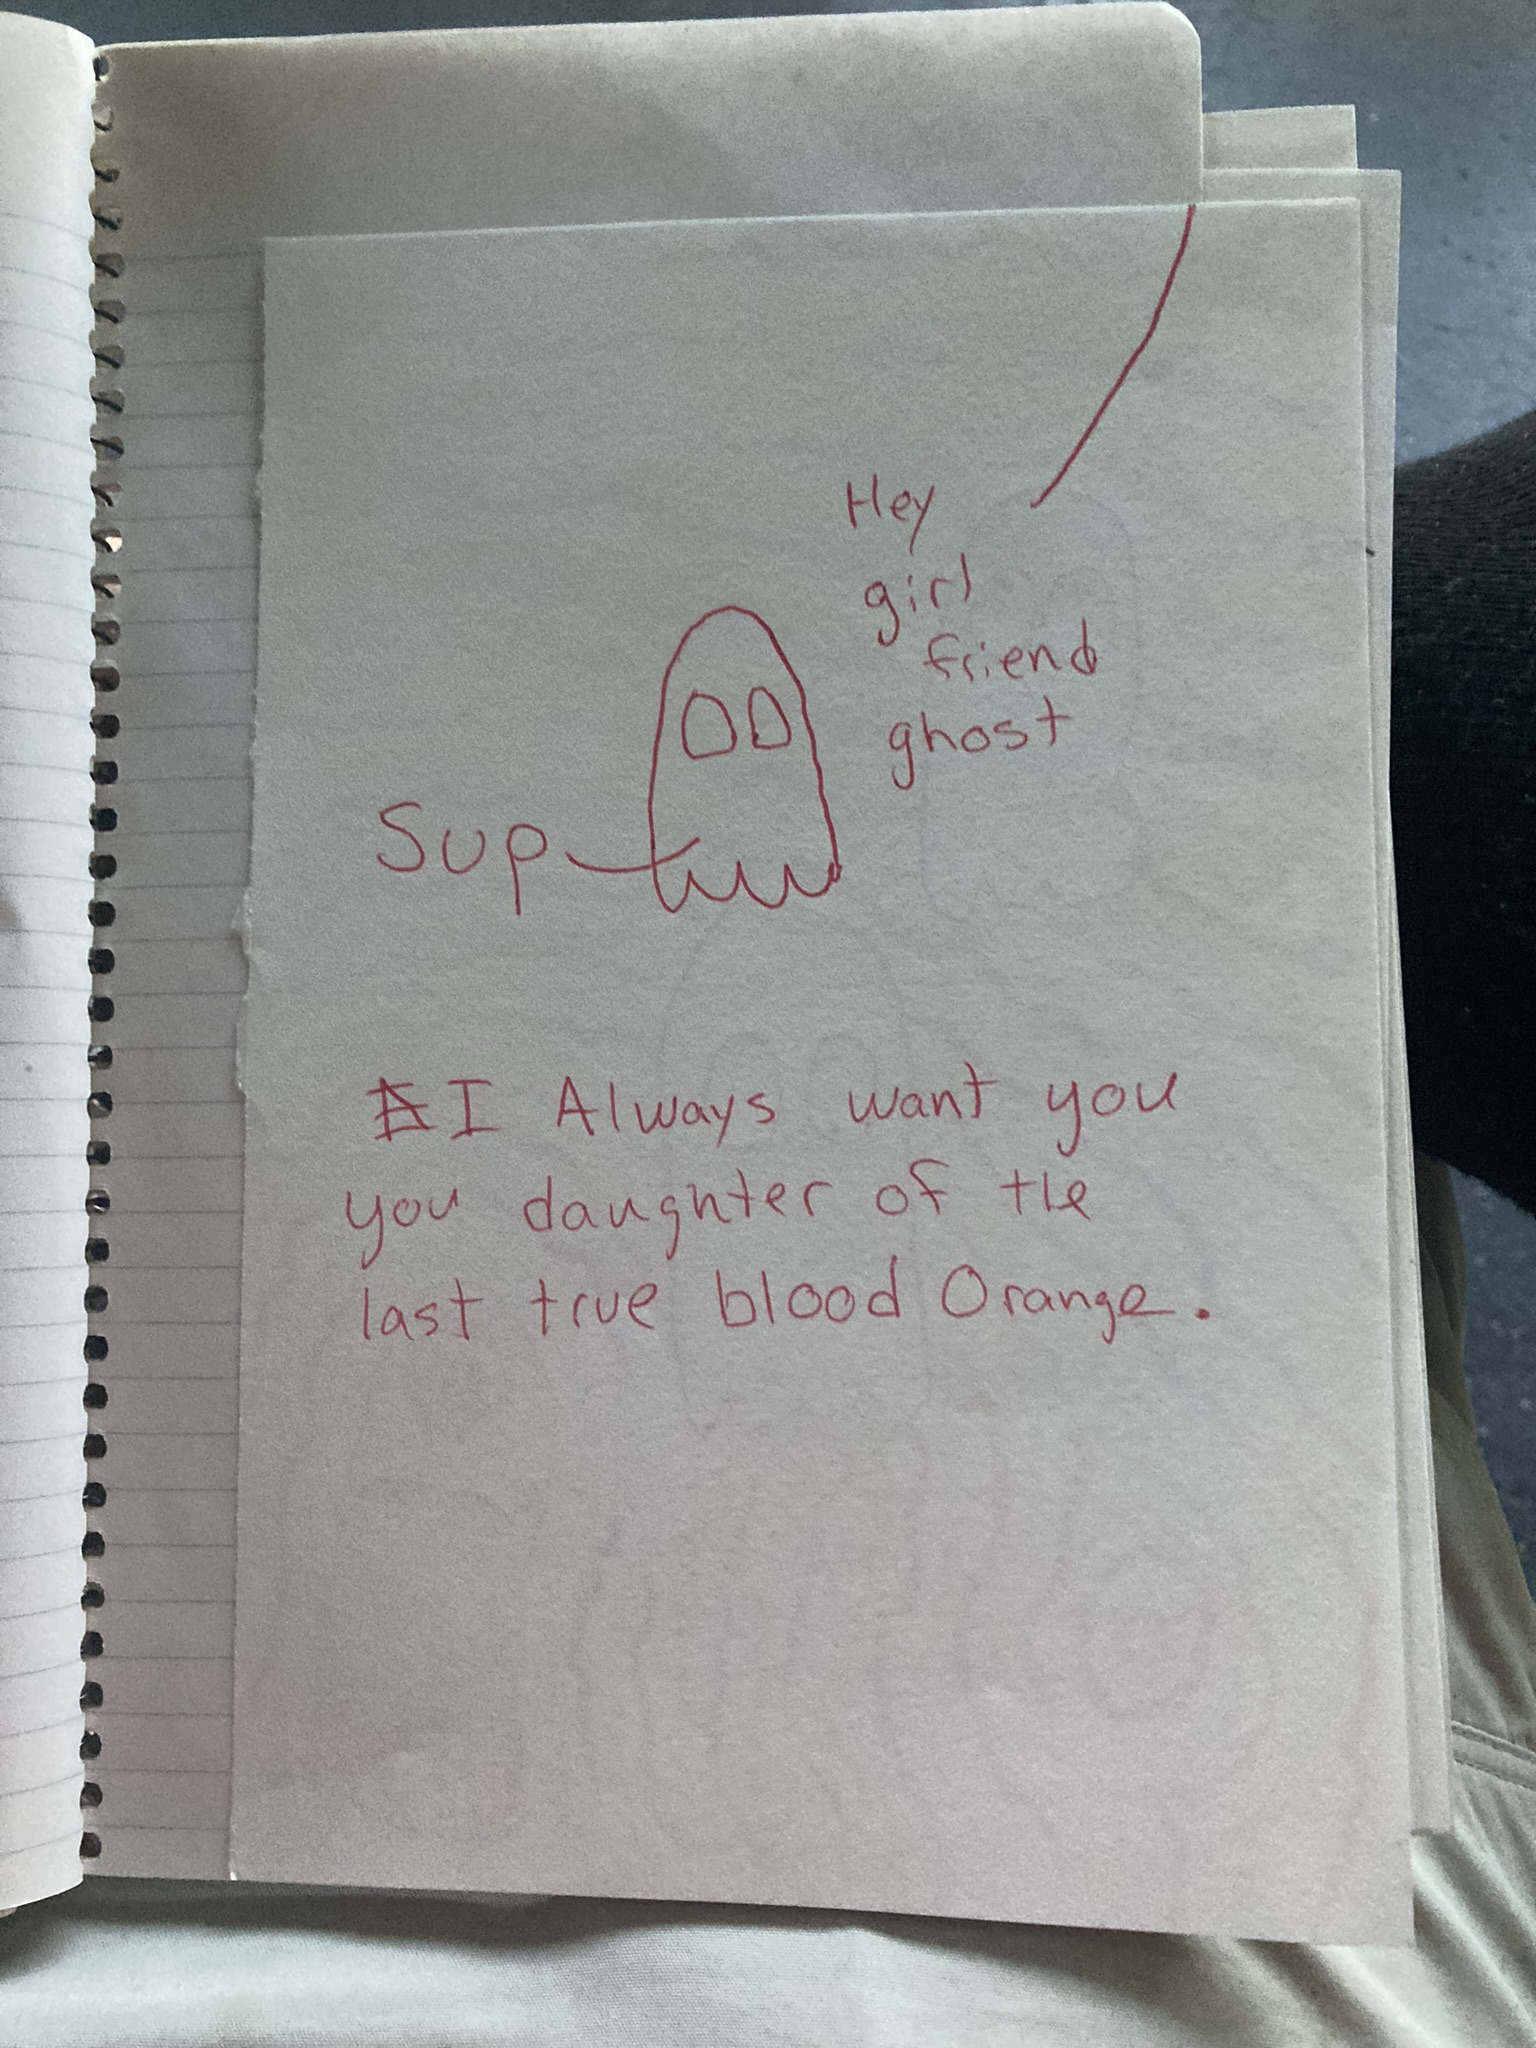 Hey
girl
friend
ghost
Sup
I Always want you
you daughter of the
last true blood Orange.